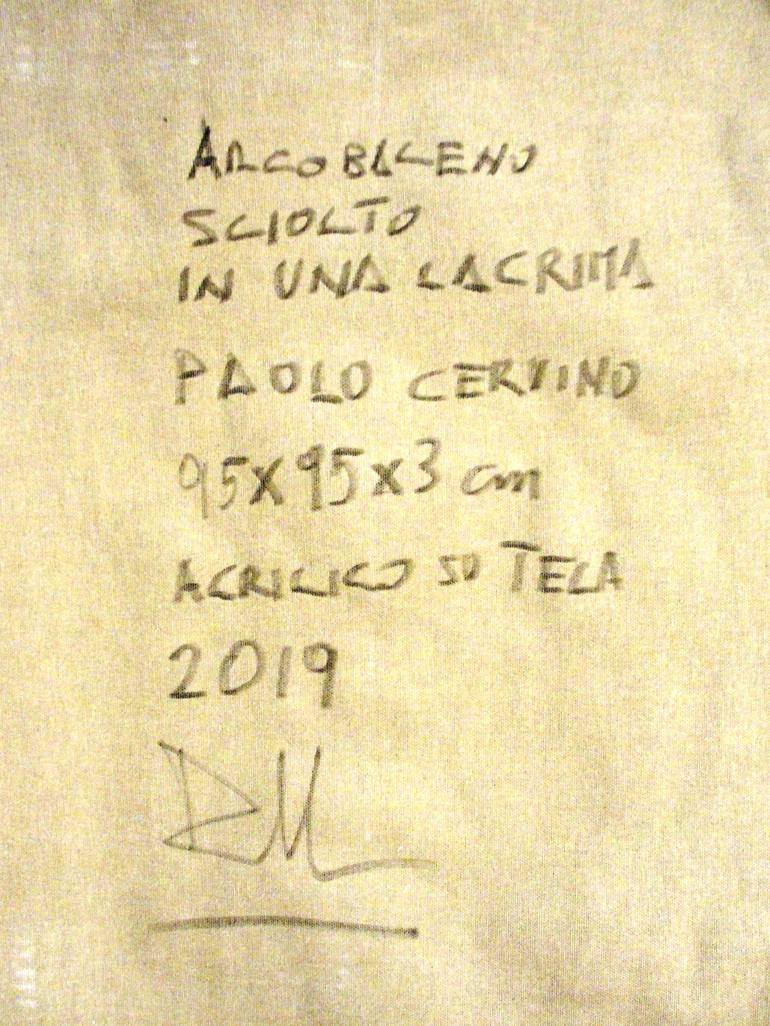 ARCOBALENO
SCIOLTO
IN UNA LACRIMA
PAOLO CERVINO
95x95x3 cm
ACRILICO SU TELA
2019